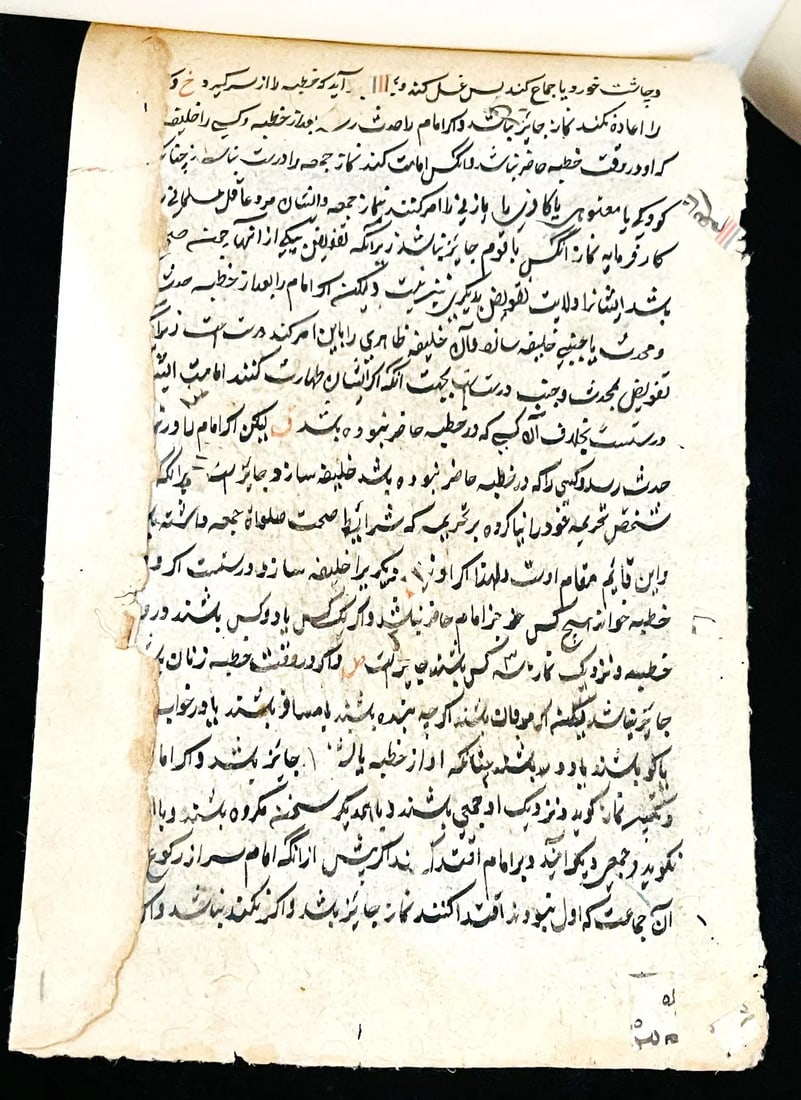 و چاشت خورد یا جماع کند پس غسل کند و آید که خطبه را از سر گیرد خ و
را اعاده نکند نماز جایز نباشد و اگر امام را حدث رسد بعد از خطبه و کسی را خلیفه
که او در وقت خطبه حاضر نباشد و انکس امامت کند نماز جمعه را درست نباشد چنانکه
کودکی یا معتوهی یا کافری یا یا زنی را امر کنند بنماز جمعه و ایشان مرد عاقل مسلمانی
کار فرماید نماز انکس با قوم جایز نباشد زیرانکه تفویض یکی از انها چون
باشد ایشانرا ولایت تفویض بدیگری نیز نیست و لیکن اگر امام را بعد از خطبه حدث
و محدث یا جنبی خلیفه سازد و آن خلیفه طاهری را باین امر کند درست است زیرا
تفویض بمحدث و جنب درست است بجهت آنکه اگر ایشان طهارت کنند امامت
درستست بخلاف آن کسی که در خطبه حاضر نبوده باشد ق لیکن اگر امام را در
حدث رسد و کسی را که در خطبه حاضر نبوده باشد خلیفه سازد جایز است برانکه
شخص تحریمه خود را بنا کرده بر تحریمه که شرایط صحت صلواة جمعه داشته
و این قایم مقام اوست و لهذا اگر او نیز دیگری را خلیفه سازد درستست اگر در
خطبه خواندن هیچ کس غیر امام حاضر نباشد و اگر یک کس یا دو کس باشند در
خطبه و نزدیک نماز سه کس باشند جایز است ص و اگر در وقت خطبه زنان
جایز نباشد لیکن اگر مردان باشند اگر چه بنده باشند یا مسافر باشند یا در خواب
یا کر باشند یا دور باشند چنانکه آواز خطبه جایز باشد و اگر اما
و تکبیر نماز گوید و نزدیک او جمعی باشند و با همدیگر سخن مکروه باشند و با
نگوید و جمعی دیگر آیند و بر امام اقتدا کنند اگر پیش از انکه امام سر از رکوع
آن جماعت که اول نبودند اقتدا کنند نماز جایز باشد و اگر نکند نباشد و اگر